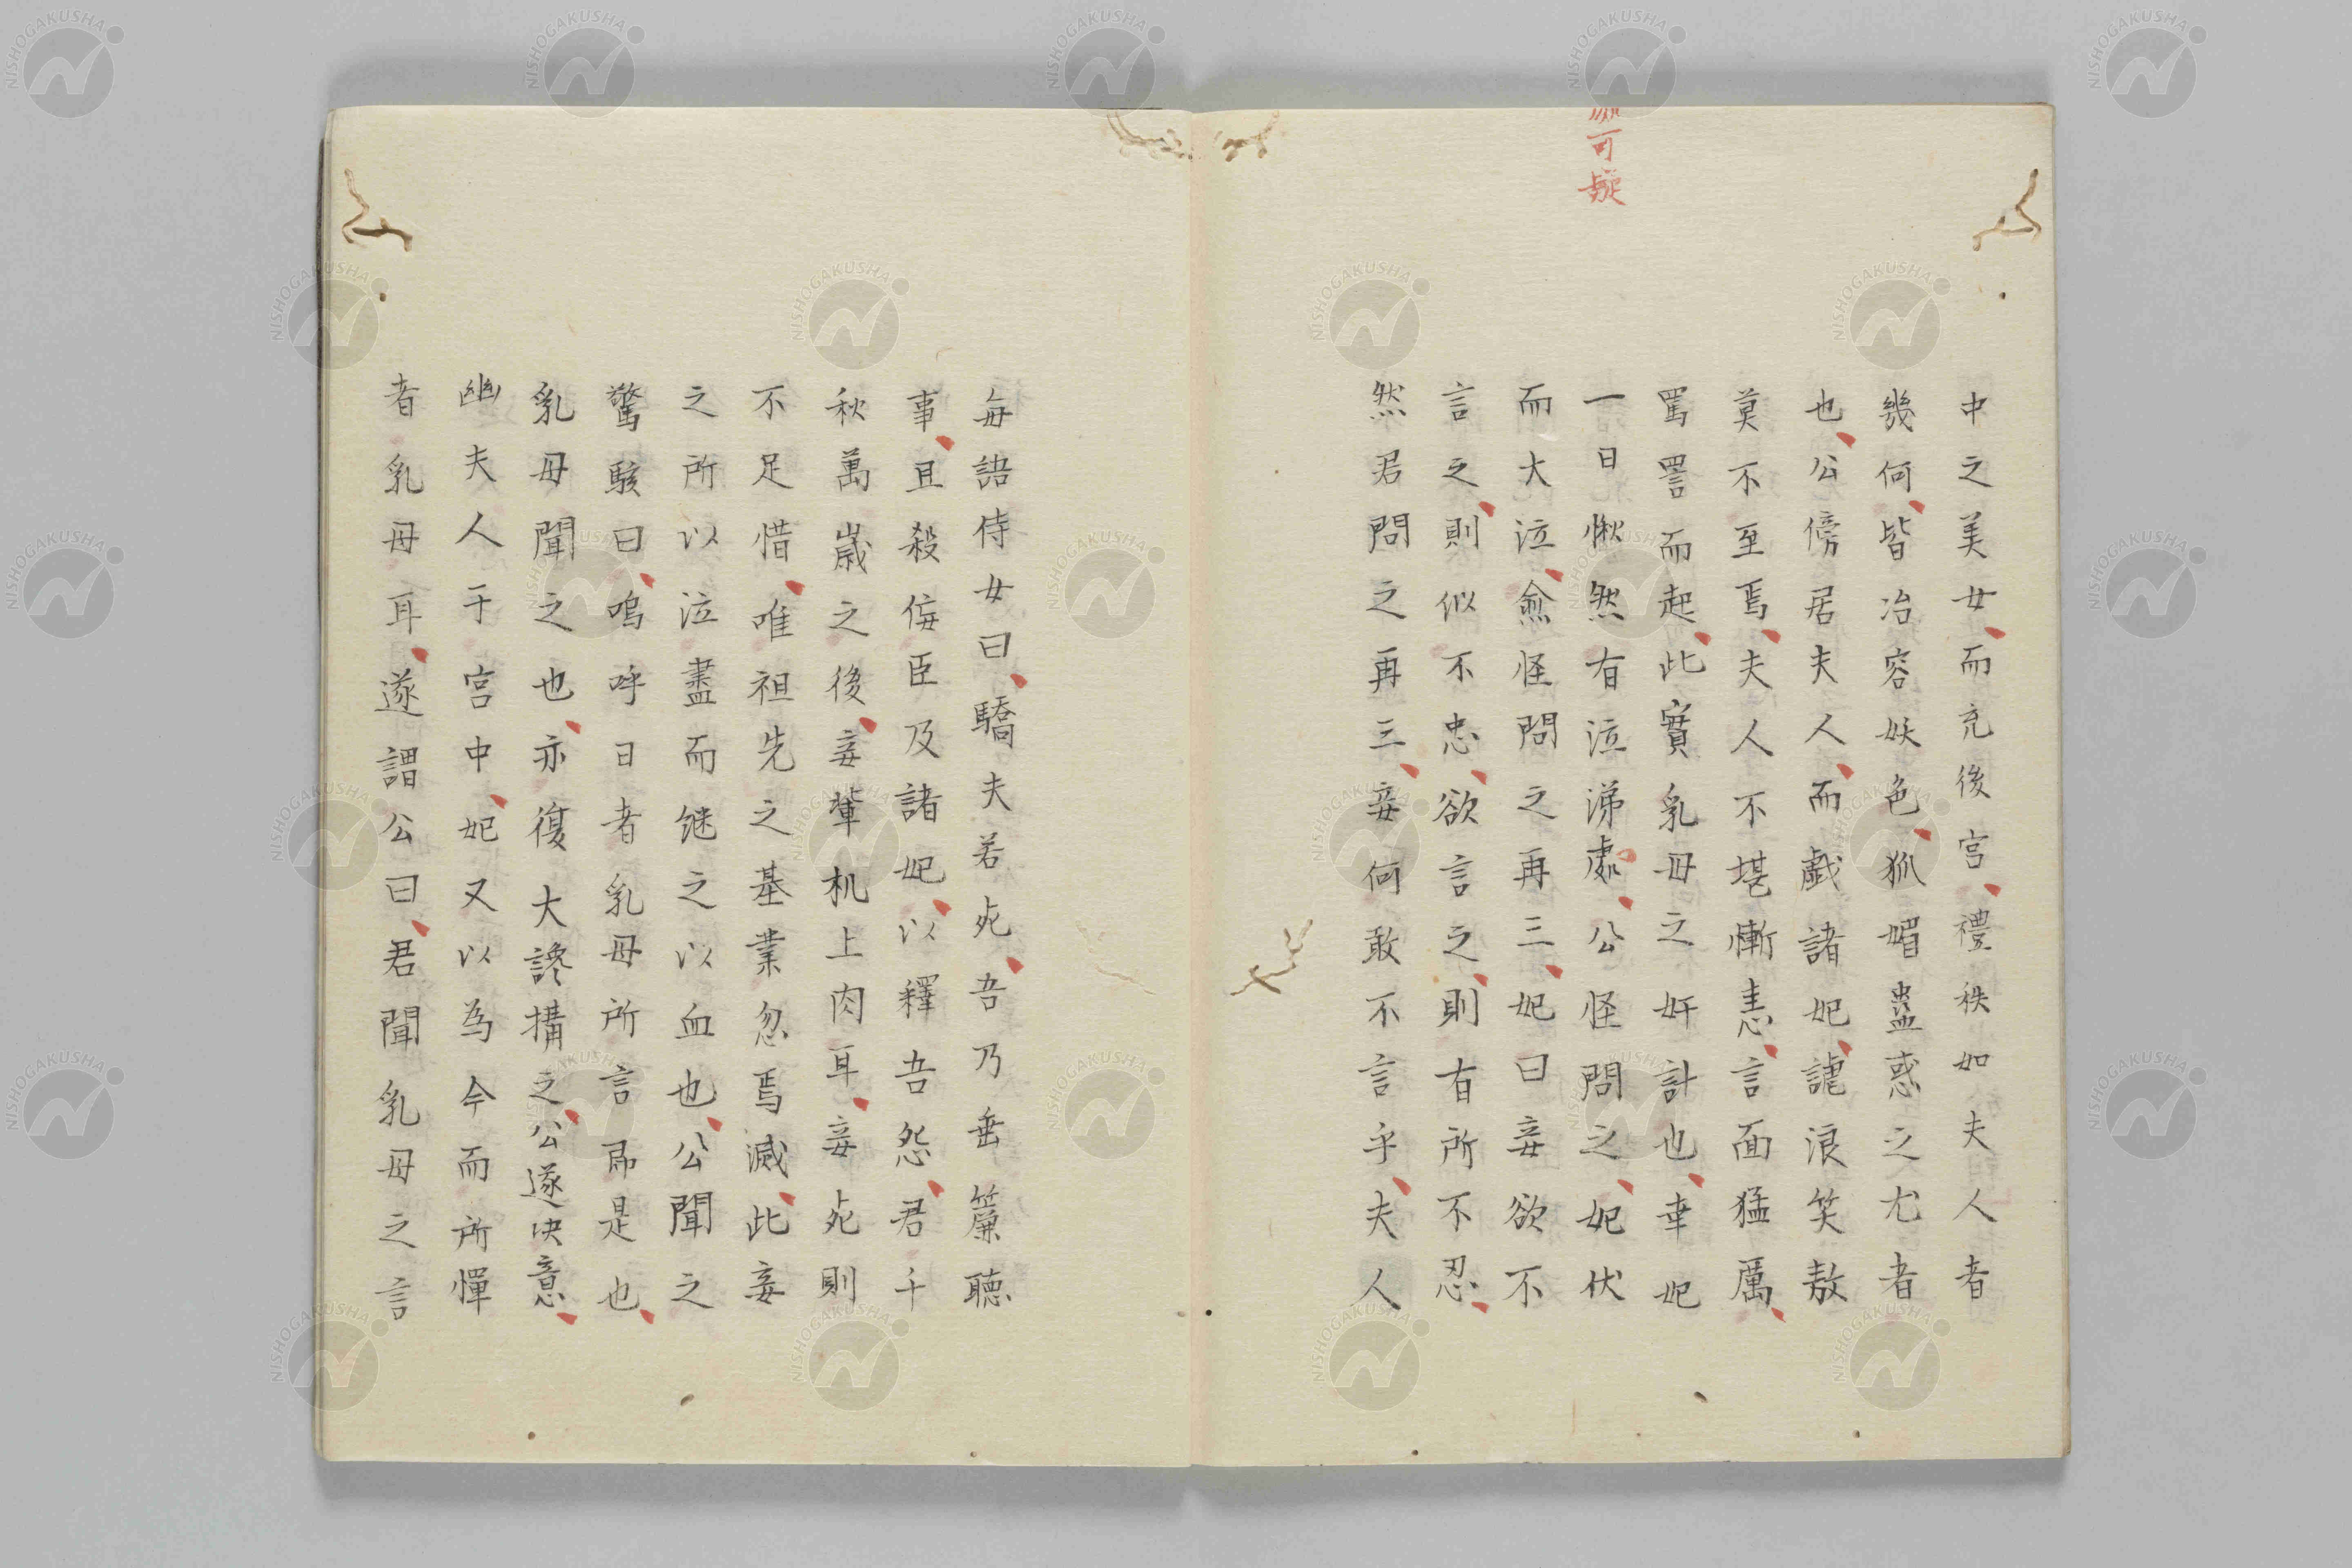 可疑
中之美女而充後宮禮秩如夫人者
幾何皆冶容妖色狐媚蠱惑之尤者
也公傍居夫人而戲諸妃謔浪笑敖
莫不至焉夫人不堪慚恚言面猛厲
罵詈而起此實乳母之奸計也幸妃
一日愀然有泣涕處公怪問之妃伏
而大泣愈怪問之再三妃曰妾欲不
言之則似不忠欲言之則有所不忍
然君問之再三妾何敢不言乎夫人
每語侍女曰驕夫若死吾乃垂簾聴
事且殺侫臣及諸妃以釋吾怨君千
秋萬歳之後妾輩机上肉耳妾死則
不足惜唯祖先之基業忽焉滅此妾
之所以泣盡而継之以血也公聞之
驚駭曰嗚呼日者乳母所言即是也
乳母聞之也亦復大讒搆之公遂决意
幽夫人于宮中妃又以為今而所憚
者乳母耳遂謂公曰君聞乳母之言
NISHOGAKUSHA